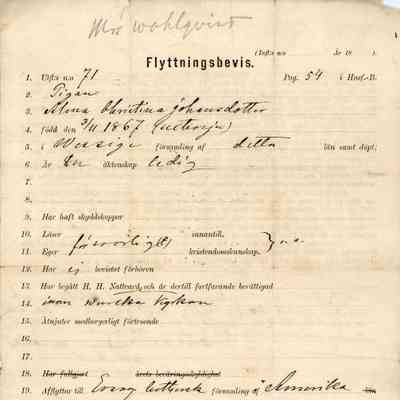 Mrs Wahlqvist
(Utfts n:o År 18 ).
Flyttningsbevis.
1. Utfts n:o 71 Pag. 54 i Husf.-B.
2. Pigan
3. Christina Johansdotter
4. född den 3/11 1867
5. i församling af detta län samt döpt;
6. Är äktenskap ledig
7.
8.
9. Har haft skyddskoppor
10. Läser innantill.
11. Eger försvarligt kristendomskunskap.
12. Har ej bevistat förhören
13. Har begått H. H. Nattvard och är dertill fortfarande berättigad
14. inom Svenska kyrkan
15. Åtnjuter medborgerligt förtroende
16.
17.
18. Har fullgjort årets beväringsskyldighet
19. Afflyttar till församling af Amerika län